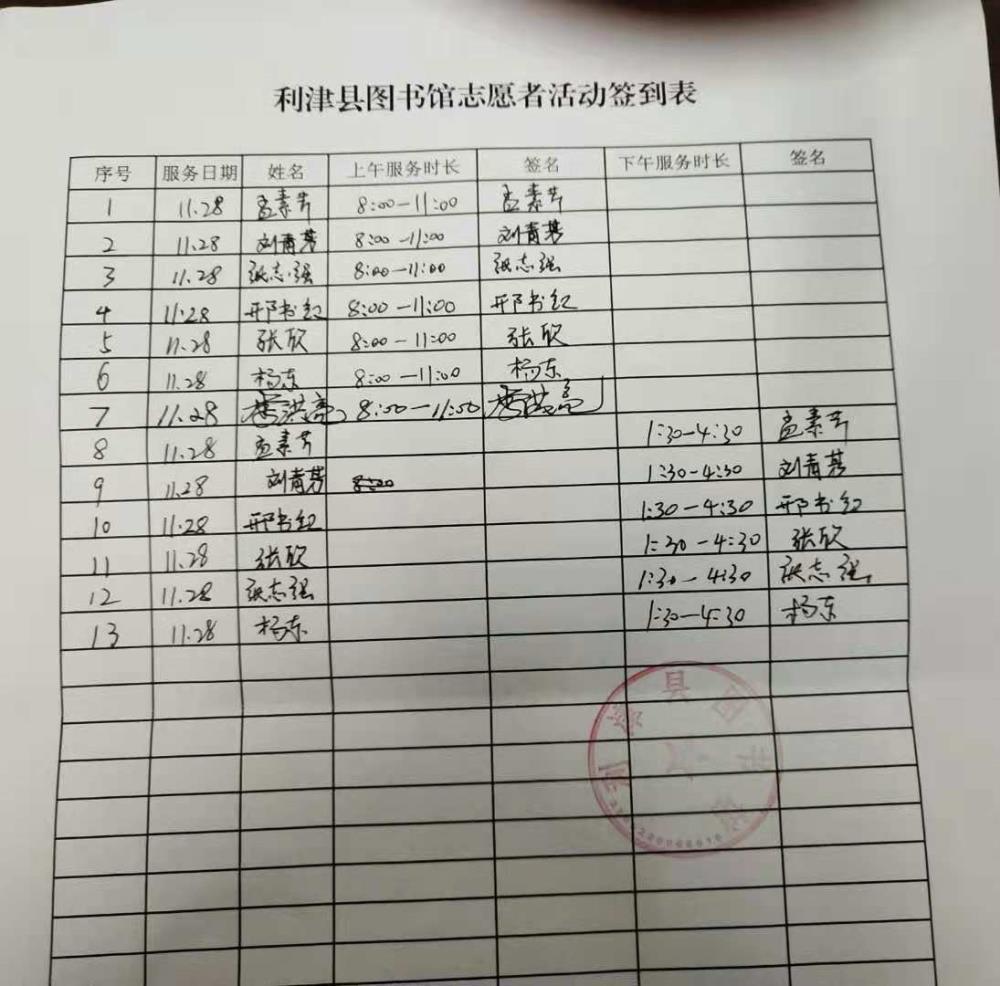 利津县图书馆志愿者活动签到表
序号 服务日期 姓名 上午服务时长 签名 下午服务时长 签名
1 11.28 孟素芳 8:00-11:00 孟素芳
2 11.28 刘青芳 8:00-11:00 刘青芳
3 11.28 张志强 8:00-11:00 张志强
4 11.28 邢书红 8:00-11:00 邢书红
5 11.28 张欣 8:00-11:00 张欣
6 11.28 杨东 8:00-11:00 杨东
7 11.28 李洪亮 8:00-11:00 李洪亮
8 11.28 孟素芳 1:30-4:30 孟素芳
9 11.28 刘青芳 8:00 1:30-4:30 刘青芳
10 11.28 邢书红 1:30-4:30 邢书红
11 11.28 张欣 1:30-4:30 张欣
12 11.28 张志强 1:30-4:30 张志强
13 11.28 杨东 1:30-4:30 杨东
利津县图书馆